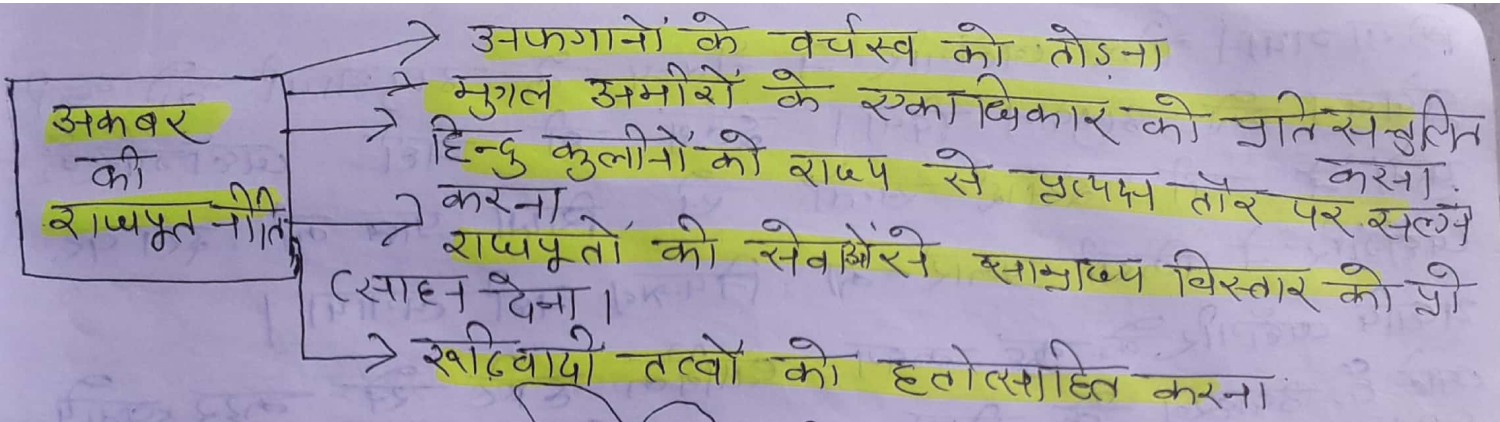 अफगानों के वर्चस्व को तोड़ना
मुगल अमीरों के एकाधिकार को प्रतिसन्तुलित
करना.
हिन्दु कुलीनों को राज्य से प्रत्यक्ष तौर पर सलंग्न
करना
राजपूतों की सेवाओं से साम्राज्य विस्तार को प्रो
त्साहन देना।
रूढ़िवादी तत्वों को हतोत्साहित करना
अकबर
की
राजपूत नीति